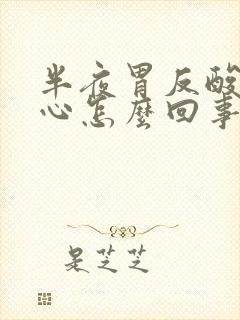 半夜胃反酸
心怎麼回事
是芝芝